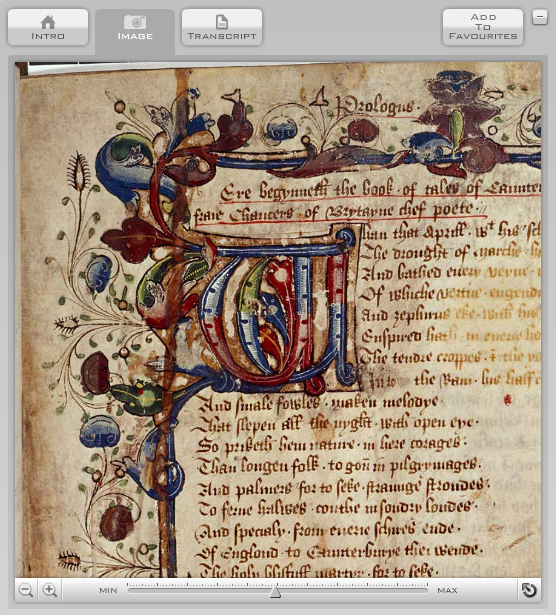 INTRO
IMAGE
TRANSCRIPT
ADD
TO
FAVOURITES
Prologus.
begynneth the book. of tales of Caunter
Chaucers. of Brytayne chef poete.
Whan that wt his
The drought of marche
And bathed euery
Of whiche vertue.
And zephirus eke. with his
Enspired hath. in euerie
The tendre croppes. & the
the Ram. his half
And smale fowles. maken melodye.
That slepen all the nyght. with open eye.
So priketh hem nature. in here corages.
Than longen folk. to gon in pilgrymages.
And palmers for to seke. straunge strondes.
To ferne halwes couthe in sondry londes.
And specialy. from euerie schires ende.
Of Englond. to Caunterburye thei wende.
The holy blisfull martyr. for to seke.
MIN
MAX